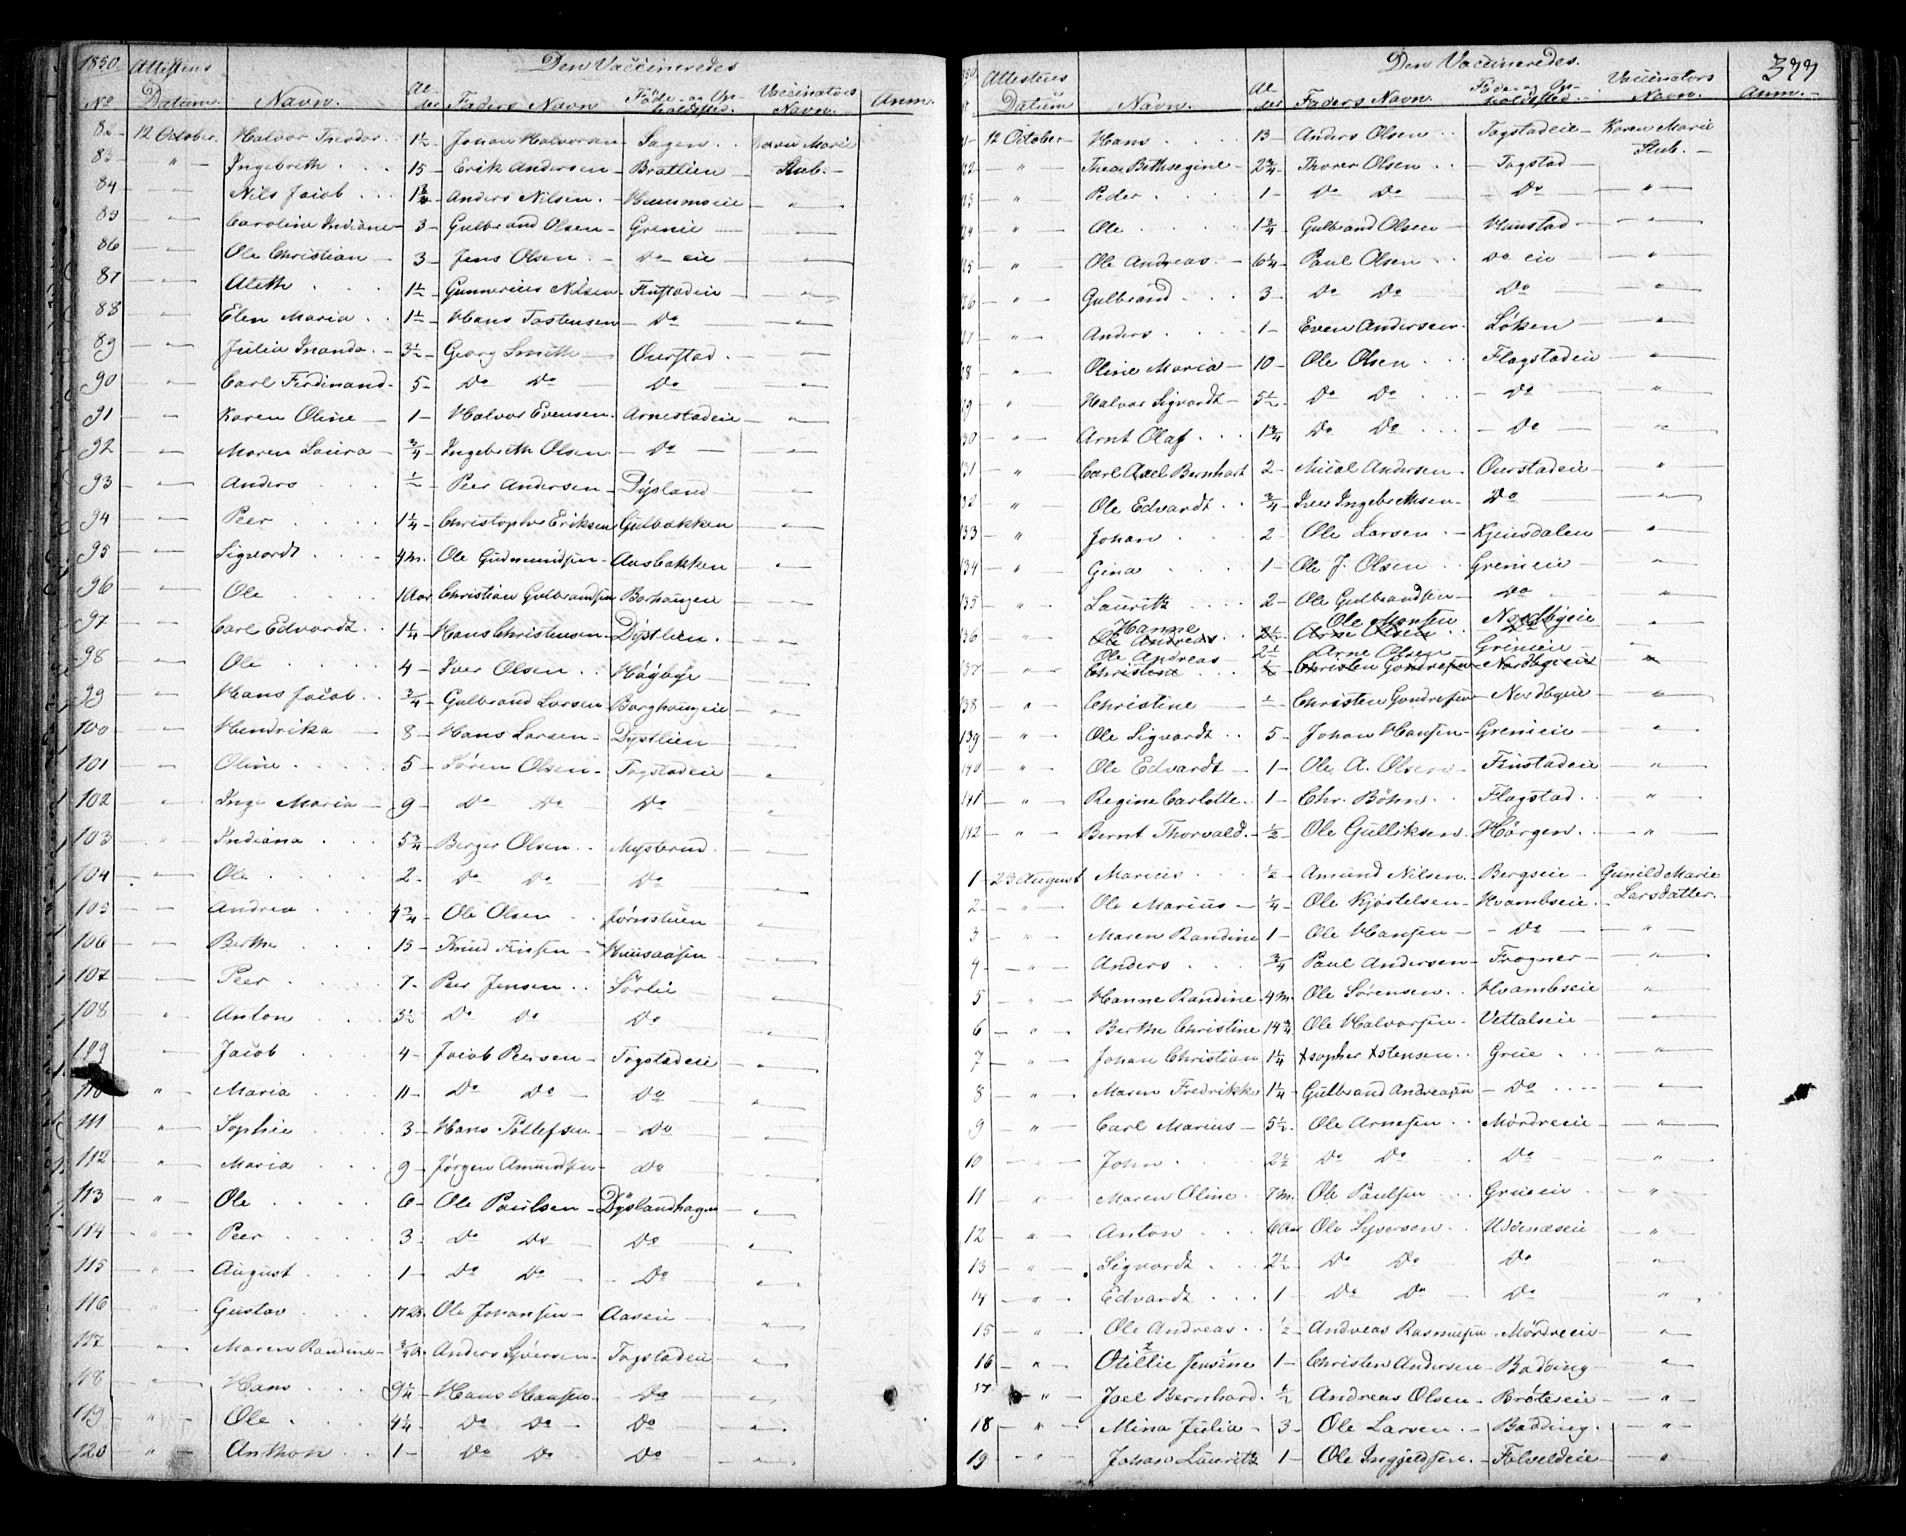 1850. Attestens Den Vaccineredes
No Datum. Navn. Alder Faders Navn Føde- og Opholdsted. Vaccinators Navn. Anm.
82 12 October. Halvor Theodor. 1½ Johan Halvorsen Sagen Karen Marie
83 " Ingebreth 15 Erik Andersen Brattlien Stub.
84 " Nils Jacob 1¾ Anders Nilsen "
85 " Caroline Indiane 3 Gulbrand Olsen Grenie "
86 " Ole Christian 3 Jens Olsen Do eie "
87 " Aleth 1½ Gunnerius Nilsen Finstadeie "
88 " Elen Maria 1½ Hans Tostensen Do "
89 " Julia Inanda 3½ Georg Smith Ourstad. "
90 " Carl Ferdinand 5 Do Do Do "
91 " Karen Oline 1 Halvor Evensen Arnestadeie "
92 " Maren Laura ¾ Ingebreth Olsen Do "
93 " Anders ½ Peer Andersen Dysland "
94 " Peer 1¼ Christopher Eriksen Gulbakken "
95 " Sigvardt 4m. Ole Gudmundsen Aasbakken "
96 " Ole 1 Aar Christian Gulbrandsen Borhaugen "
97 " Carl Edvardt 1¼ Hans Christensen Dystlien. "
98 " Ole 4 Iver Olsen Høgbye "
99 " Hans Jacob ¾ Gulbrand Larsen Borghaugeie "
100 " Hendrika 8 Hans Larsen Dystlien "
101 " Oline 5 Søren Olsen Togstadeie "
102 " Inge Maria 9 Do Do Do "
103 " Indiana 5¾ Berger Olsen Mysterud "
104 " Ole 2 Do Do Do "
105 " Andrea 4¾ Ole Olsen Jørnstuen "
106 " Berthe 15 Knud Finsen Huusaasen "
107 " Peer 7 Peer Jensen Sørlie "
108 " Anton 5½ Do Do Do "
109 " Jacob 4 Jacob Peersen Togstadeie "
110 " Maria 11 Do Do Do "
111 " Sophie 3 Hans Tollefsen Do "
112 " Maria 9 Jørgen Amundsen Do "
113 " Ole 6 Ole Paulsen Dyslandhagen "
114 " Peer 3 Do Do Do "
115 " August 1 Do Do Do "
116 " Gustav Ole Johansen Aaseie "
117 " Maren Randine ¾ Anders Syversen Togstadeie "
118 " Hans 9¼ Hans Hansen Do "
119 " Ole 4¼ Do Do Do "
120 " Anthon 1 Do Do Do "
Attestens Den Vaccineredes. 377
Datum Navn. Alder Faders Navn. Føde og Opholdsted. Vaccinators Navn. Anm.
21 12 October Hans 13 Anders Olsen Togstadeie Karen Marie
22 " Thea Bethsegine 2¾ Thorer Olsen Togstad Stub.
23 " Peder 1 Do Do Do "
24 " Ole 1¾ Gulbrand Olsen Hunstad "
25 " Ole Andreas 6¼ Paul Olsen Do eie "
26 " Gulbrand 3 Do Do Do "
27 " Anders 1 Even Andersen Løken "
28 " Oline Maria 10 Ole Olsen Flagstadeie "
29 " Halvor Sigvardt 5½ Do Do Do "
130 " Arnt Olaf 1¾ Do Do Do "
131 " Carl Axel Bernhart 2 Micael Andersen Ourstadeie "
132 " Ole Edvardt ¾ Iver Ingebrethsen Do "
133 " Johan 2 Ole Larsen Kjensdalen "
134 " Gina 1 Ole J. Olsen Grenieie "
135 " Lauritz 2 Ole Gulbrandsen Do "
Hanne Ole Hansen Nordbyeie
136 " Ole Andreas 2½ Arne Olsen Do
Ole Andreas 2½ Arne Olsen Grenieie
137 " Christine ½ Christen Gundersen Nordbyeie "
138 " Christine ½ Christen Gundersen Nordbyeie "
139 " Ole Sigvardt 5 Johan Hansen Grenieie "
140 " Ole Edvardt 1 Ole A. Olsen Finstadeie "
141 " Regine Carlotte. 1 Chr. Bøhn Flagstad. "
142 " Bernt Thorvald. ½ Ole Gulliksen Hørgen. "
1 23 August Marius ½ Amund Nilsen. Bergseie Gunild Marie
2 " Ole Marius ¼ Ole Kjøstelsen Hvambseie Larsdatter.
3 " Maren Randine 1 Ole Hansen Do "
4 " Anders ¾ Paul Andersen Frogner "
5 " Hanne Randine 4m Ole Sørensen Hvambseie "
6 " Berthe Christine 14¾ Ole Halvorsen Vettalseie "
7 " Johan Christian 1¼ Xsopher Xstensen Grue "
8 " Maren Fredrikke 1¼ Gulbrand Andreasen Do "
9 " Carl Marius 5½ Ole Arnesen Mørdreeie "
10 " John 2½ Do Do Do "
11 " Maren Oline 7m. Ole Paulsen Grueeie "
12 " Anton 6 Aar Ole Syversen Udenæseie "
13 " Sigvardt 2½ Do Do Do "
14 " Edvardt 1 Do Do Do "
15 " Ole Andreas ½ Andreas Rasmusen Mørdreeie "
16 " Otillie Jensine 1 Christen Andersen Badding "
17 " Joel Bernhard. ½ Andreas Olsen Brøteseie "
18 " Mina Julia 3 Ole Larsen Badding. "
19 " Johan Lauritz 1 Ole Ingjeldsen. Folveldeie "